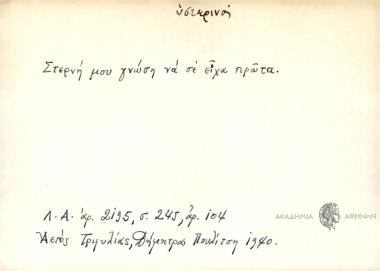 ὑστερινός
Στερνή μου γνώση νά σέ εἶχα πρῶτα.
ΑΚΑΔΗΜΙΑ ΑΘΗΝΩΝ
Λ.Α. ἀρ. 2195, σ. 245, ἀρ. 104
Ἀετός Τριφυλίας, Δήμητρα Πουλίτση 1940.